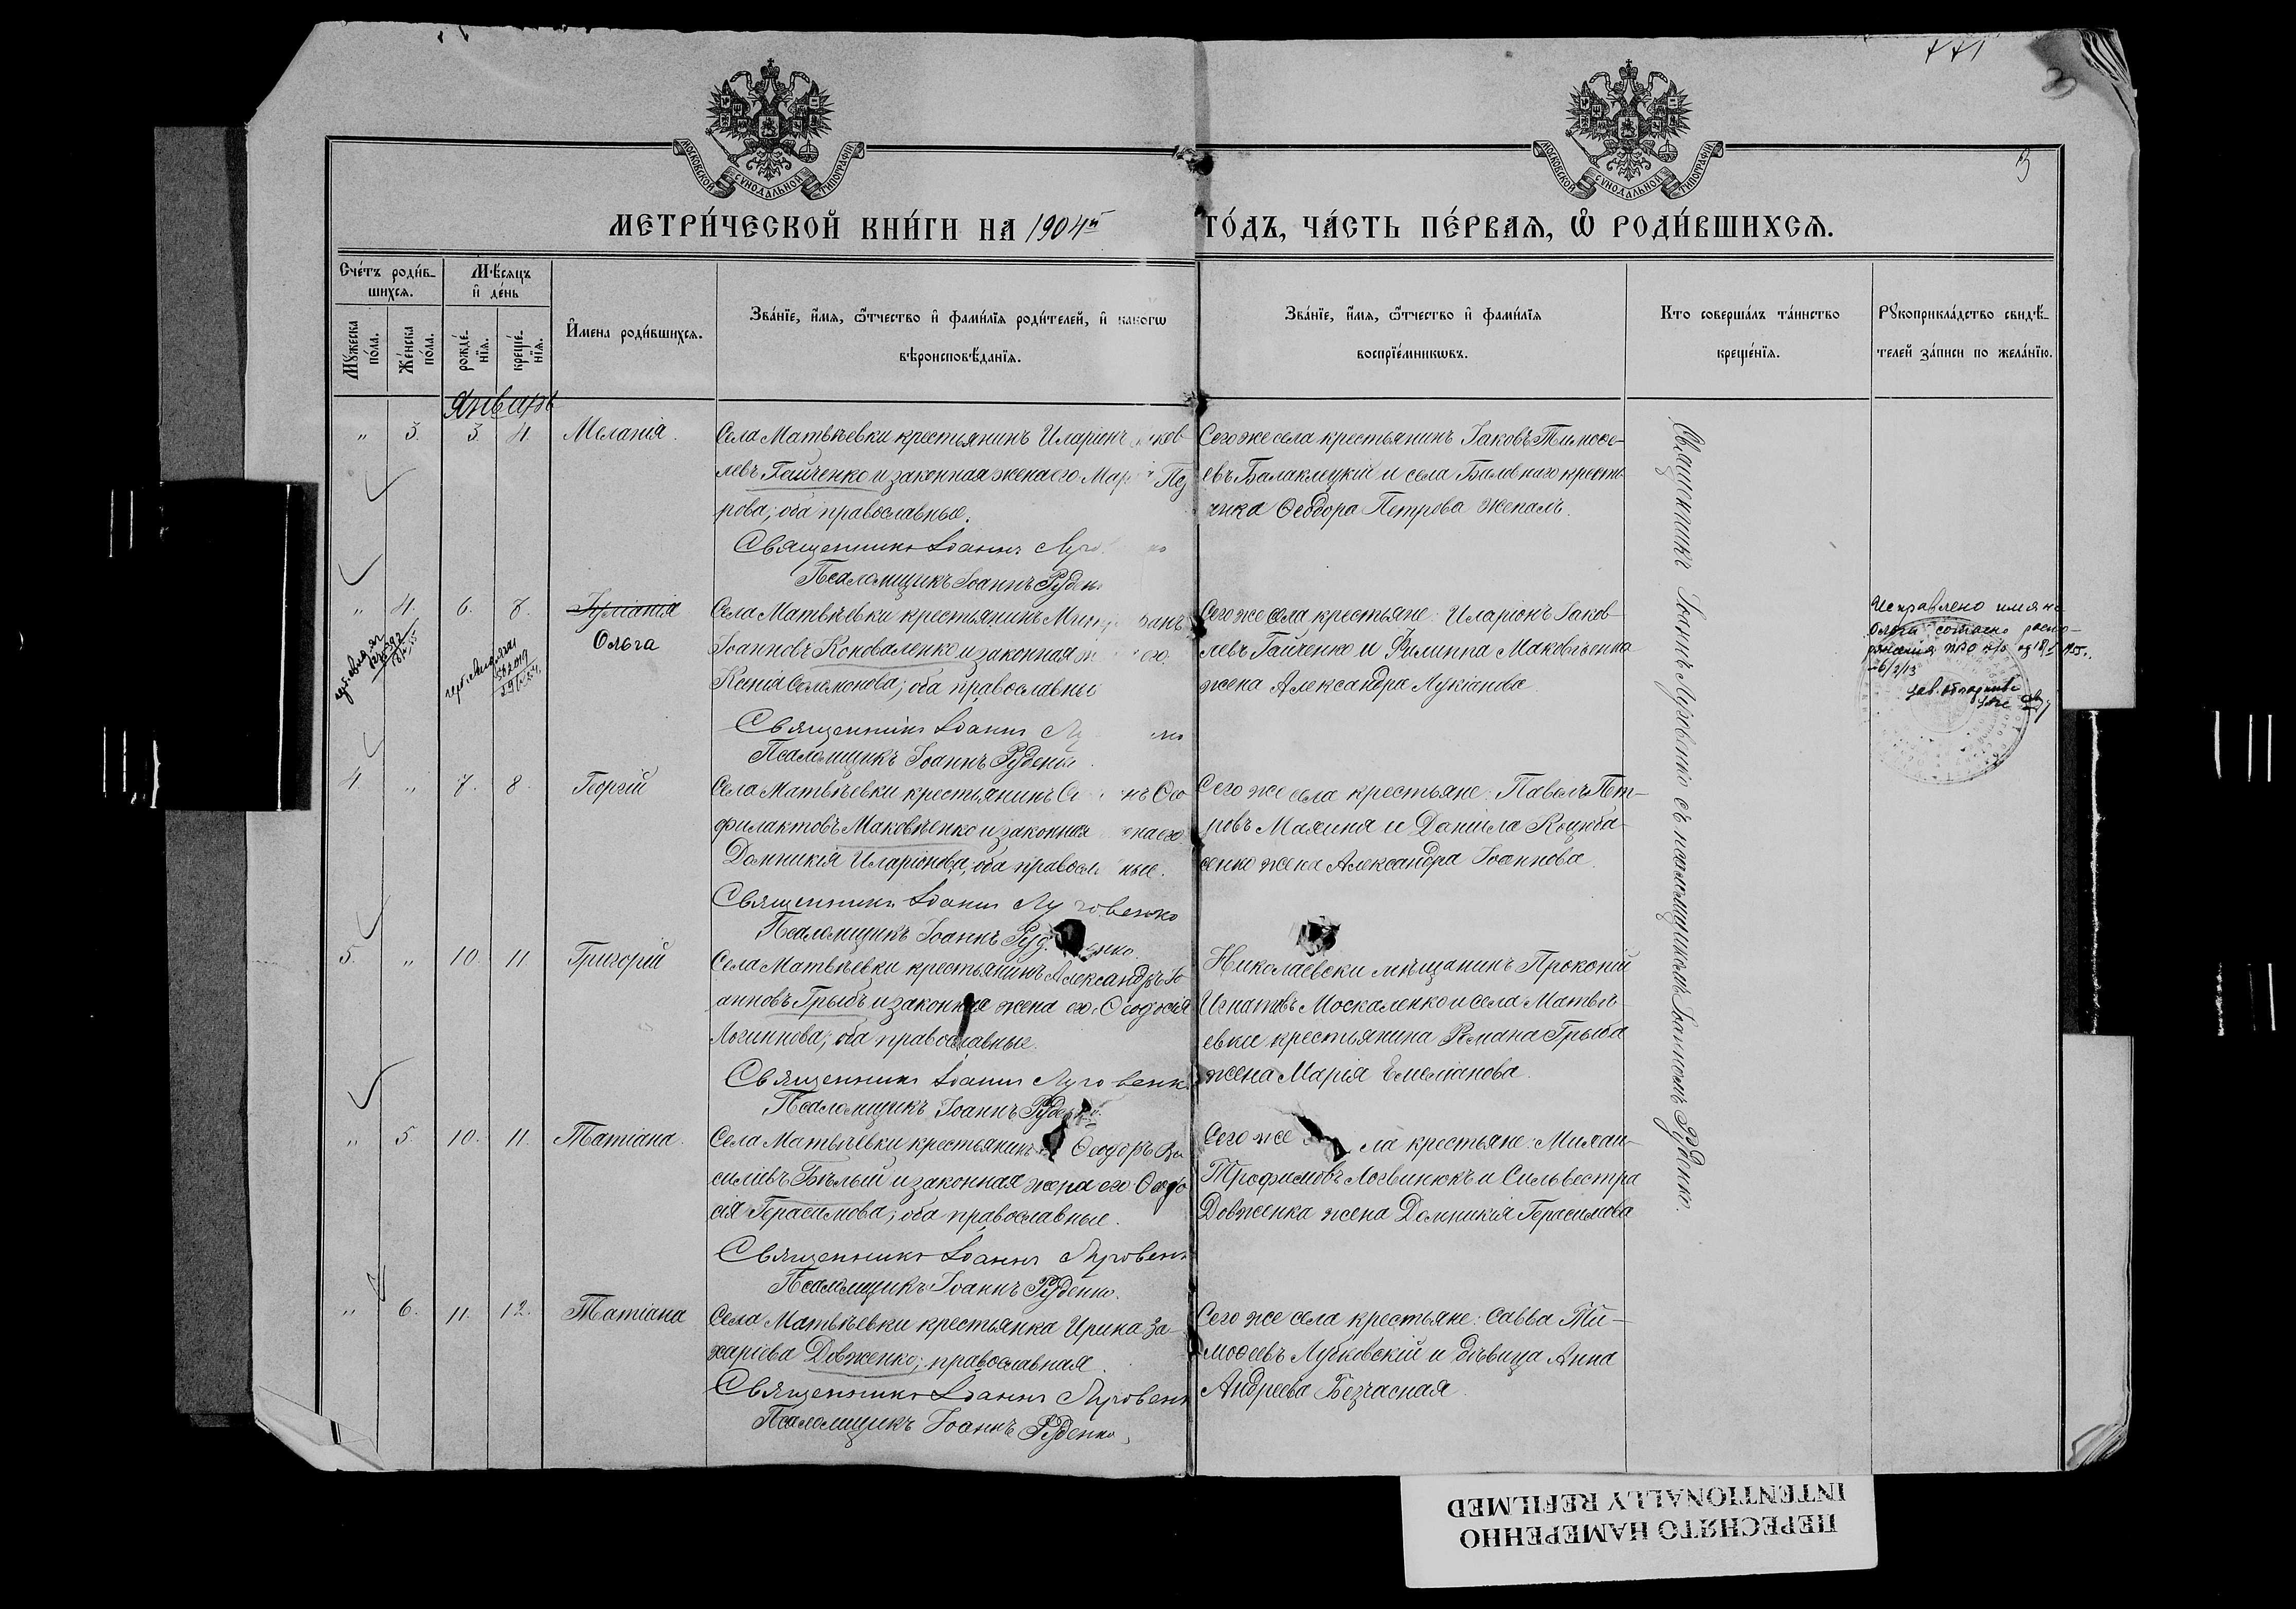 441
3
МОСКОВСКОЙ СУНОДАЛЬНОЙ ТИПОГРАФІИ
МОСКОВСКОЙ СУНОДАЛЬНОЙ ТИПОГРАФІИ
МЕТРИ́ЧЕСКОЙ КНИ́ГИ НА 1904й ГО́ДЪ, ЧА́СТЬ ПЕ́РВАЯ, Ѡ РОДИ́ВШИХСЯ.
Сче́тъ роди́вшихся.
Мѣ́сяцъ и де́нь
Мꙋ́жеска по́ла.
Же́нска по́ла.
рожде́нїя.
креще́нїя.
И҆мена роди́вшихся.
Зва́нїе, и҆́мя, ѻ҆́тчество и҆ фами́лїя роди́телей, и҆ како́гѡ
вѣроисповѣ́данїя.
Зва́нїе, и҆́мя, ѻ҆́тчество и҆ фами́лїя
воспрїе́мникѡвъ.
Кто соверша́лъ та́инство
креще́нїя.
Рꙋкоприкла́дство свидѣ́-
телей за́писи по жела́нїю.
Январь
" 3. 3. 4. Меланія.
Села Матвѣевки крестьянинъ Иларіонъ
левъ Гайченко и законная жена его Пет
рова; оба православные.
Священникъ Іоаннъ
Псаломщикъ Іоаннъ
Сего же села крестьянинъ Іаковъ Тимоѳе-
евъ Балаклецкій и села крестья-
нина Ѳеодора Петрова жена
" 4. 6. 8. Іуліанія
Ольга
Села Матвѣевки крестьянинъ
Іоанновъ Коноваленко и законная его
Ксенія Соломонова; оба православны
Священникъ Іоаннъ
Псаломщикъ Іоаннъ Руденко
Сего же села крестьяне: Иларіонъ Іаков-
левъ Гайченко и Филиппа Маковѣенка
жена Александра Лукіанова.
Исправлено имя на
Ольга согласно
4 " 7. 8. Георгій
Села Матвѣевки крестьянинъ Ѳео
филактовъ Маковѣенко и законная жена его
Домникія Иларіонова; оба православные.
Священникъ Іоаннъ Луговенко
Псаломщикъ Іоаннъ Руденко.
Сего же села крестьяне: Павелъ Пет-
ровъ Малина и Даніила
жена Александра Іоаннова.
5. " 10. 11 Григорій
Села Матвѣевки крестьянинъ Александръ Іо
анновъ Грыбъ и законная жена его Ѳеодосія
Логиннова; оба православные.
Священникъ Іоаннъ Луговенк
Псаломщикъ Іоаннъ Руденко.
Николаевски мѣщанинъ Прокопій
Игнатовъ Москаленко и села Матвѣ-
евки крестьянина Романа Грыба
жена Марія Емеліанова.
" 5. 10. 11. Татіана.
Села Матвѣевки крестьянинъ Ѳеодоръ Ва
силіевъ Бѣлый и законная жена его Ѳеодо
сія Герасимова; оба православные.
Священникъ Іоаннъ Луговенк
Псаломщикъ Іоаннъ Руденко.
Сего же села крестьяне:
Трофимовъ Логвинюкъ и Сильвестра
Довженка жена Домникія Герасимова
" 6. 11. 12. Татіана
Села Матвѣевки крестьянка Ирина За-
харіева Довженко; православная.
Священникъ Іоаннъ Луговенк
Псаломщикъ Іоаннъ Руденко.
Сего же села крестьяне: Савва Ти-
моѳеевъ Лубковскій и дѣвица Анна
Андреева Безчасная.
Священникъ Іоаннъ Луговенко съ псаломщикомъ Іоанномъ Руденко.
ПЕРЕСНЯТО НАМЕРЕННО
INTENTIONALLY REFILMED